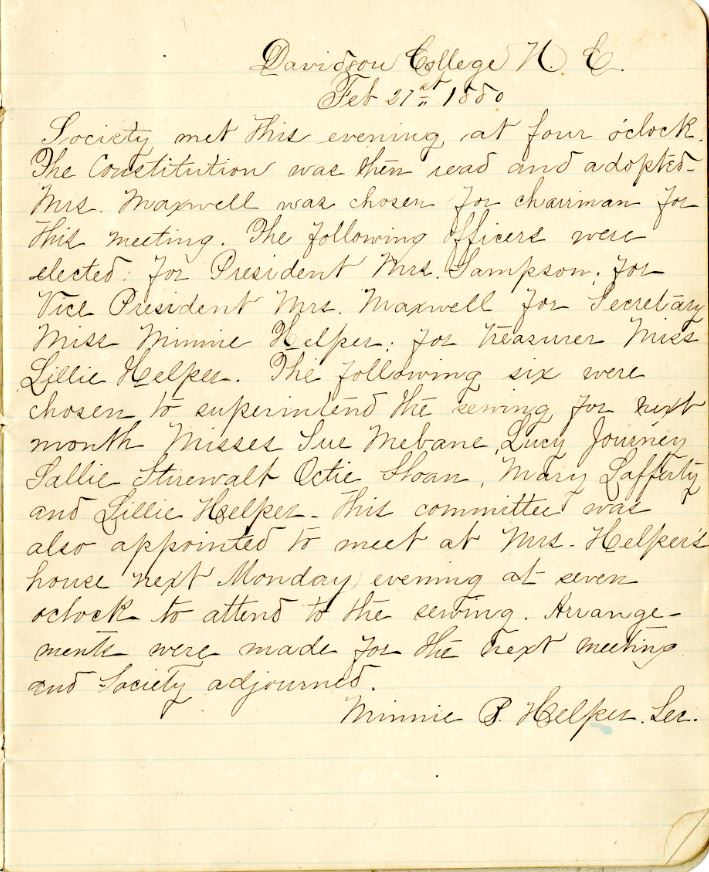 Davidson College N. C.
Feb 21st 1880
Society met this evening at four o'clock.
The Constitution was then read and adopted.
Mrs. Maxwell was chosen for chairman for
this meeting. The following officers were
elected: for President Mrs. Sampson; for
Vice President Mrs. Maxwell for Secretary
Miss Minnie Helper; for treasurer Miss
Lillie Helper. The following six were
chosen to superintend the sewing for next
month Misses Sue Mebane, Lucy Journey
Sallie Stirewalt Octie Sloan, Mary Lafferty
and Lillie Helper. This committee was
also appointed to meet at Mrs. Helper's
house next Monday evening at seven
oclock to attend to the sewing. Arrange-
ments were made for the next meeting
and Society adjourned.
Minnie P. Helper. Sec.